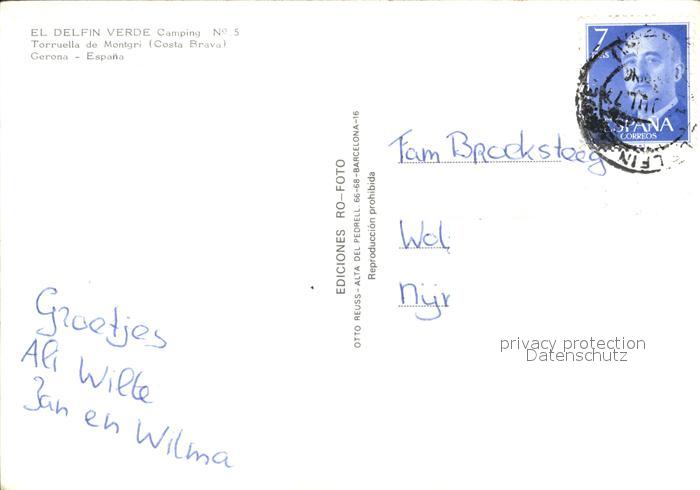 EL DELFIN VERDE Camping Nº 5
Torruella de Montgri (Costa Brava)
Gerona - España
7
PTAS
ESPAÑA
CORREOS
EDICIONES RO-FOTO
OTTO REUSS-ALTA DEL PEDRELL. 66-68-BARCELONA-16
Reproducción prohibida
Fam Brocksteeg
Wol
Nijr
privacy protection
Datenschutz
Groetjes
Ali Wilte
Jan en Wilma